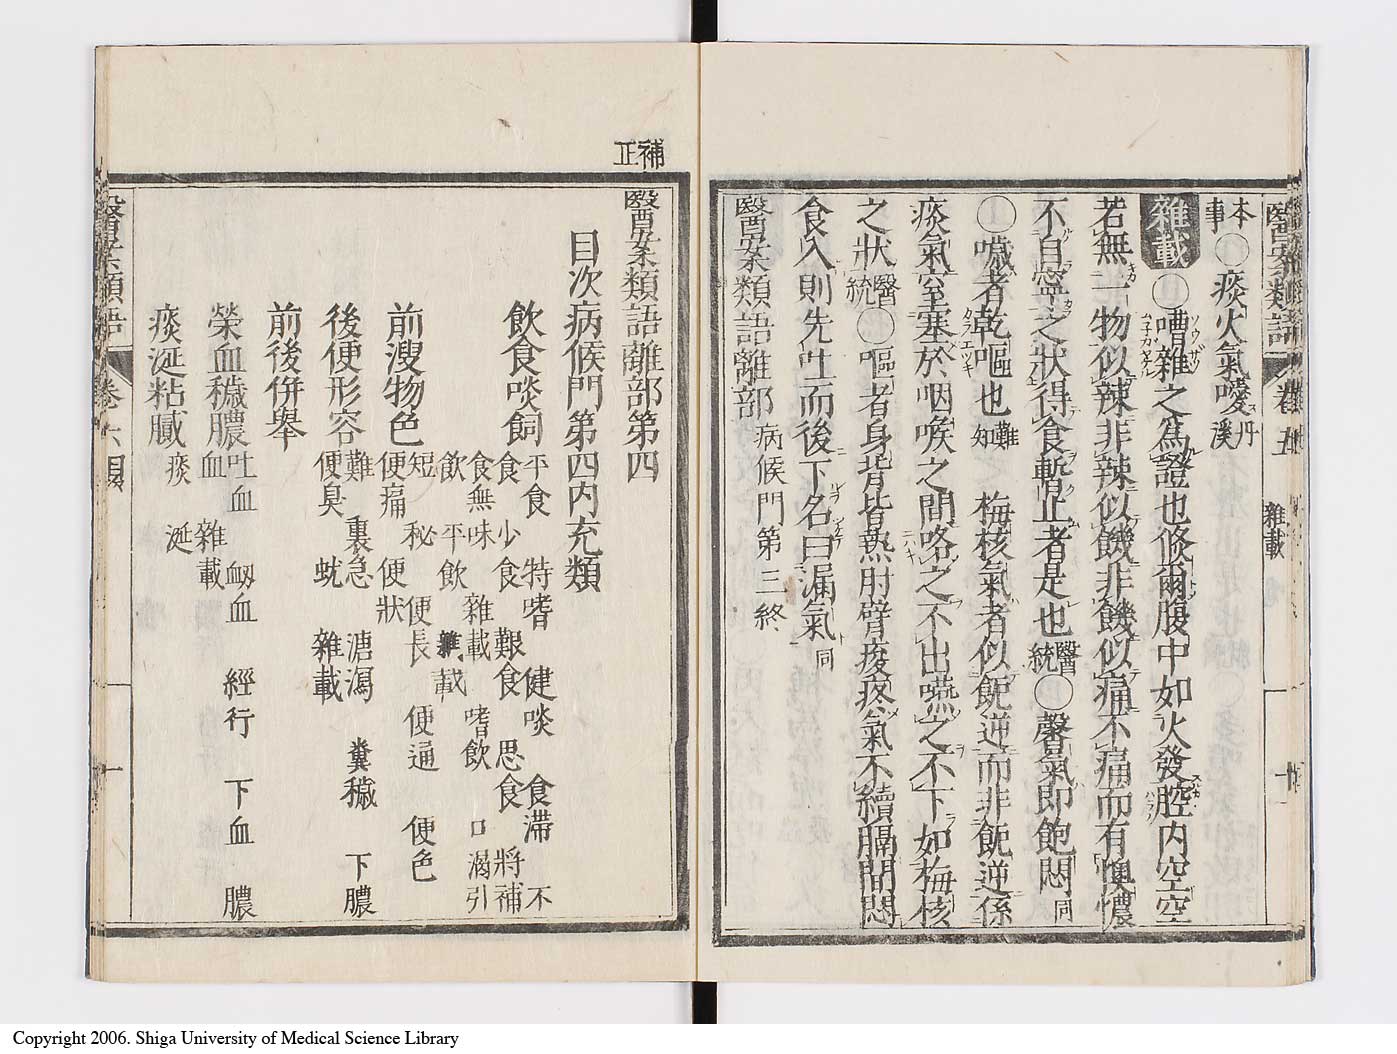 本事○痰火氣噯丹溪
雜載○嘈雜之為證也倏爾腹中如火發腔内空空
若無一物似辣非辣似饑非饑似痛不痛而有懊憹
不自寧之狀得食暫止者是也醫統○㲈氣即飽悶同
○噦者乾嘔也難知 梅核氣者似飥逆而非飥逆係
痰氣窒塞於咽喉之間咯之不出嚥之不下如梅核
之狀醫統○嘔者身背皆熱肘臂痠疼氣不續膈間悶
食入則先吐而後下名曰漏氣同
醫案類語離部病候門第三終
醫案類語 卷五 雜載 十
補正
醫案類語離部第四
目次病候門第四内充類
飲食啖飼 平食 特嗜 健啖 食滯 不
食 少食 艱食 思食 將補
食無味 雜載 嗜飲 口渴引
飲 平飲 雜載
前溲物色 短 秘 便長 便遍 便色
便痛 便狀
後便形容 難 裏急 溏瀉 糞穢 下膿
便臭 蚘 雜載
前後併舉
榮血穢膿 吐血 衂血 經行 下血 膿
血 雜載
痰涎粘膩 痰 涎
醫案類語 卷六 目
Copyright 2006. Shiga University of Medical Science Library